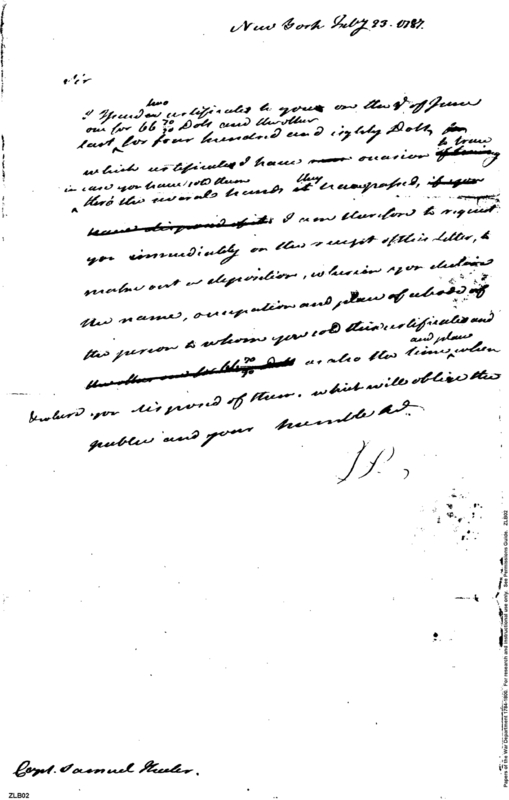 New York July 23. 1787.
Sir
two
I issued certificates to you on the 1 of June
one for 66 70/90 Dols and the other
last, for four hundred and eighty Dolls
to trace
which certificates I have occasion
in case you have sold them they
thro the several hands it transgressed, if you
have disposed of it I am therefore to request
you immediately on the receipt of this Letter, to
make out a deposition, wherein you declare
the name, occupation and place of abode of
the person to whom you sold this certificate and
and place
the other one for 66 70/90 Dols as also the time when
& where you disposed of them. which will oblige the
public and your humble Svt.
JP.
Capt. Samuel Keeler.
ZLB02
Papers of the War Department 1784-1800. For research and instructional use only. See Permissions Guide. ZLB02